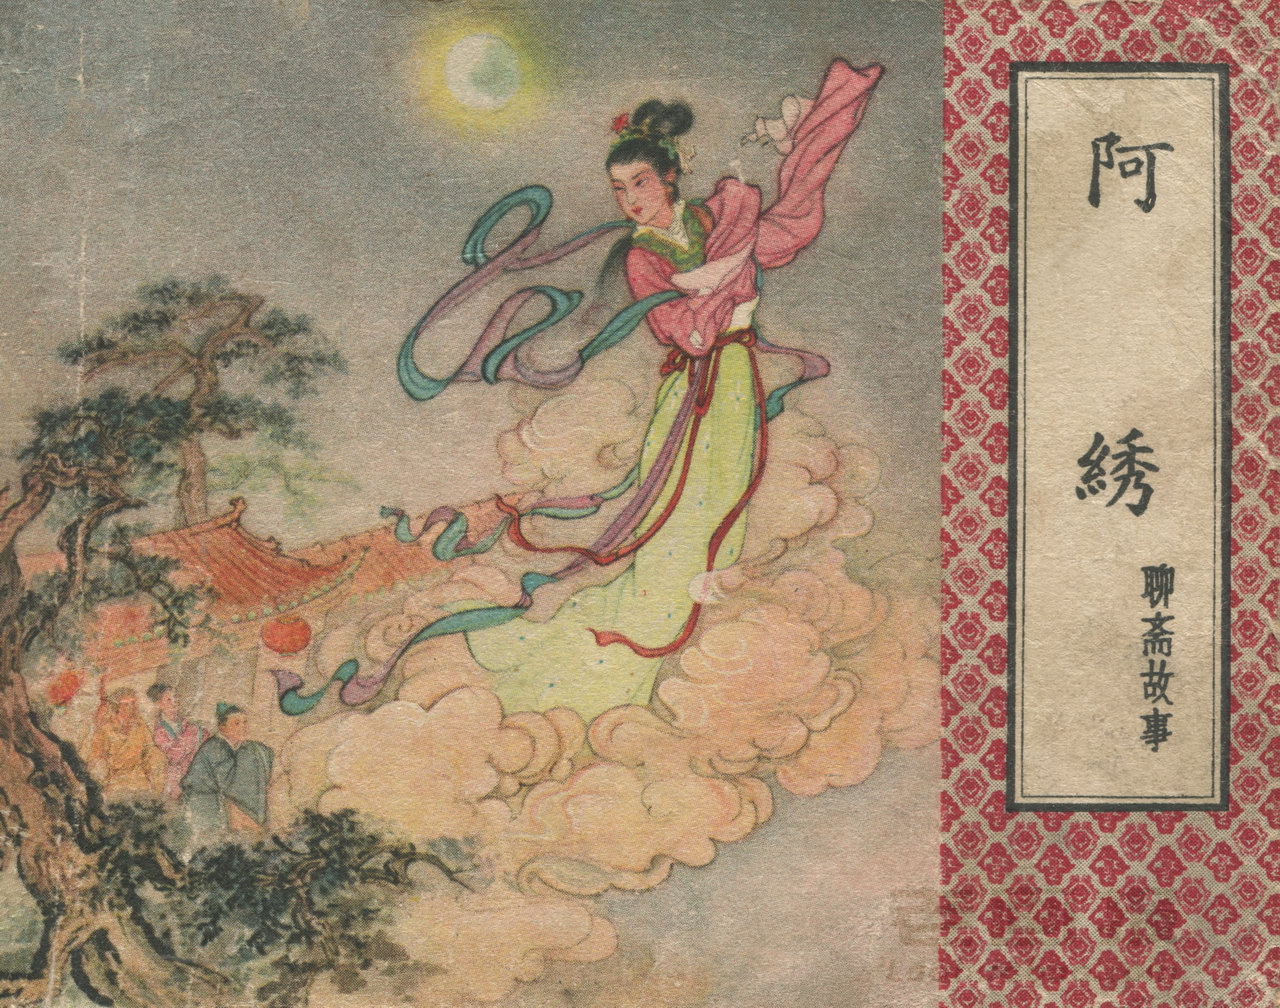 阿綉
聊斎故事